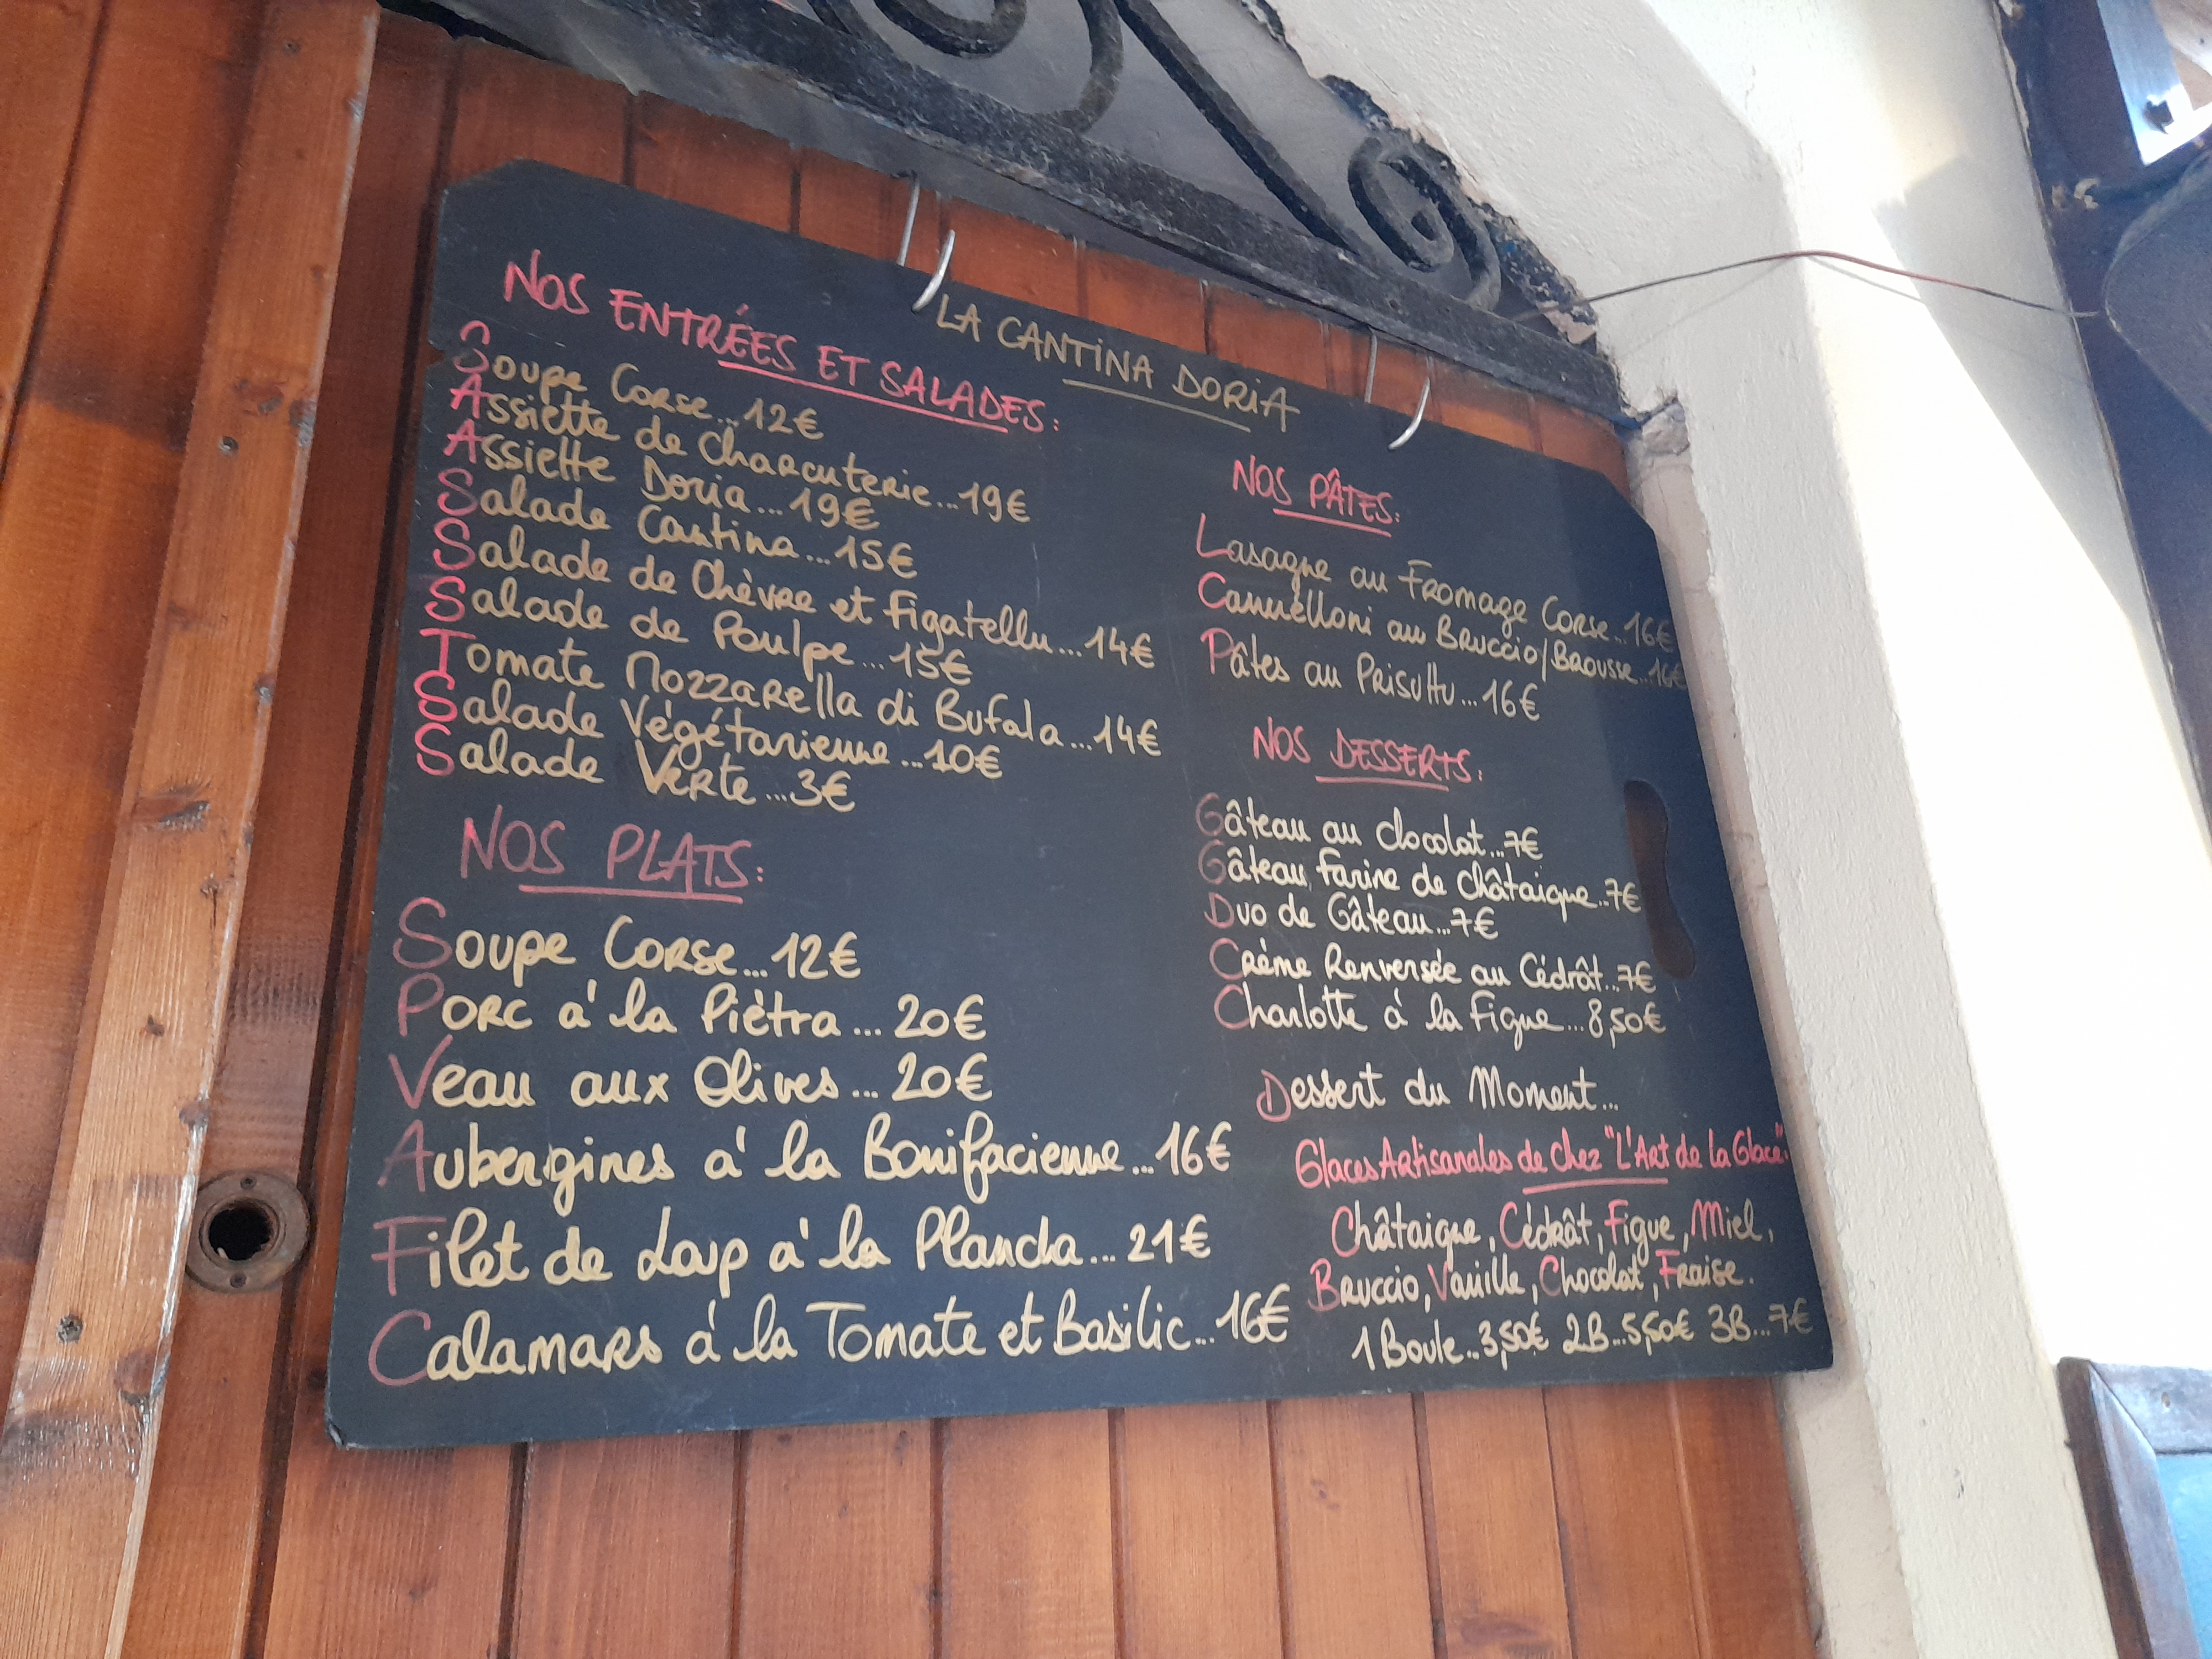 LA CANTINA DORIA
NOS ENTRÉES ET SALADES:
Soupe Corse...12€
Assiette de Charcuterie...19€
Assiette Doria...19€
Salade Cantina...15€
Salade de Chèvre et Figatellu...14€
Salade de Poulpe...15€
Tomate Mozzarella di Bufala...14€
Salade Végétarienne...10€
Salade Verte...3€
NOS PLATS:
Soupe Corse...12€
Porc à la Piètra...20€
Veau aux Olives...20€
Aubergines à la Bonifacienne...16€
Filet de Loup à la Plancha...21€
Calamars à la Tomate et Basilic...16€
NOS PÂTES:
Lasagne au Fromage Corse...16€
Cannelloni au Bruccio/Brousse...16€
Pâtes au Prisuttu...16€
NOS DESSERTS:
Gâteau au chocolat...7€
Gâteau Farine de châtaigne...7€
Duo de Gâteau...7€
Crème Renversée au Cédrât...7€
Charlotte à la Figue...8,50€
Dessert du Moment...
Glaces Artisanales de chez "L'Art de la Glace"
Châtaigne, Cédrât, Figue, Miel,
Bruccio, Vanille, Chocolat, Fraise.
1 Boule...3,50€ 2B...5,50€ 3B...7€